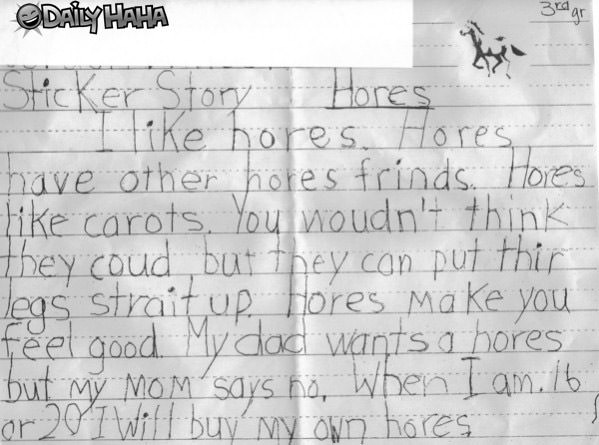 DAILY HAHA
3rd gr
Sticker Story Hores
I like hores. Hores
have other hores frinds. Hores
like carots. You woudn't think
they coud, but they can put thir
legs strait up. Hores make you
feel good. My dad wants a hores
but my mom says no. When I am. 16
or 20 I will buy my own hores